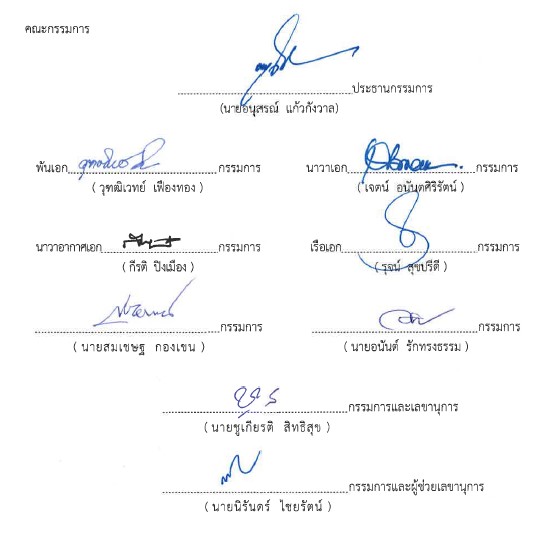 คณะกรรมการ
ประธานกรรมการ
(นายอนุสรณ์ แก้วกังวาล)
พันเอก กรรมการ นาวาเอก กรรมการ
( วุฑฒิเวทย์ เฟื่องทอง ) ( เจตน์ อนันตศิริรัตน์ )
นาวาอากาศเอก กรรมการ เรือเอก กรรมการ
( กีรติ ปิงเมือง ) ( รุจน์ สุขปรีดี )
กรรมการ กรรมการ
( นายสมเชษฐ กองเขน ) ( นายอนันต์ รักทรงธรรม )
กรรมการและเลขานุการ
( นายชูเกียรติ สิทธิสุข )
กรรมการและผู้ช่วยเลขานุการ
( นายนิรันดร์ ไชยรัตน์ )